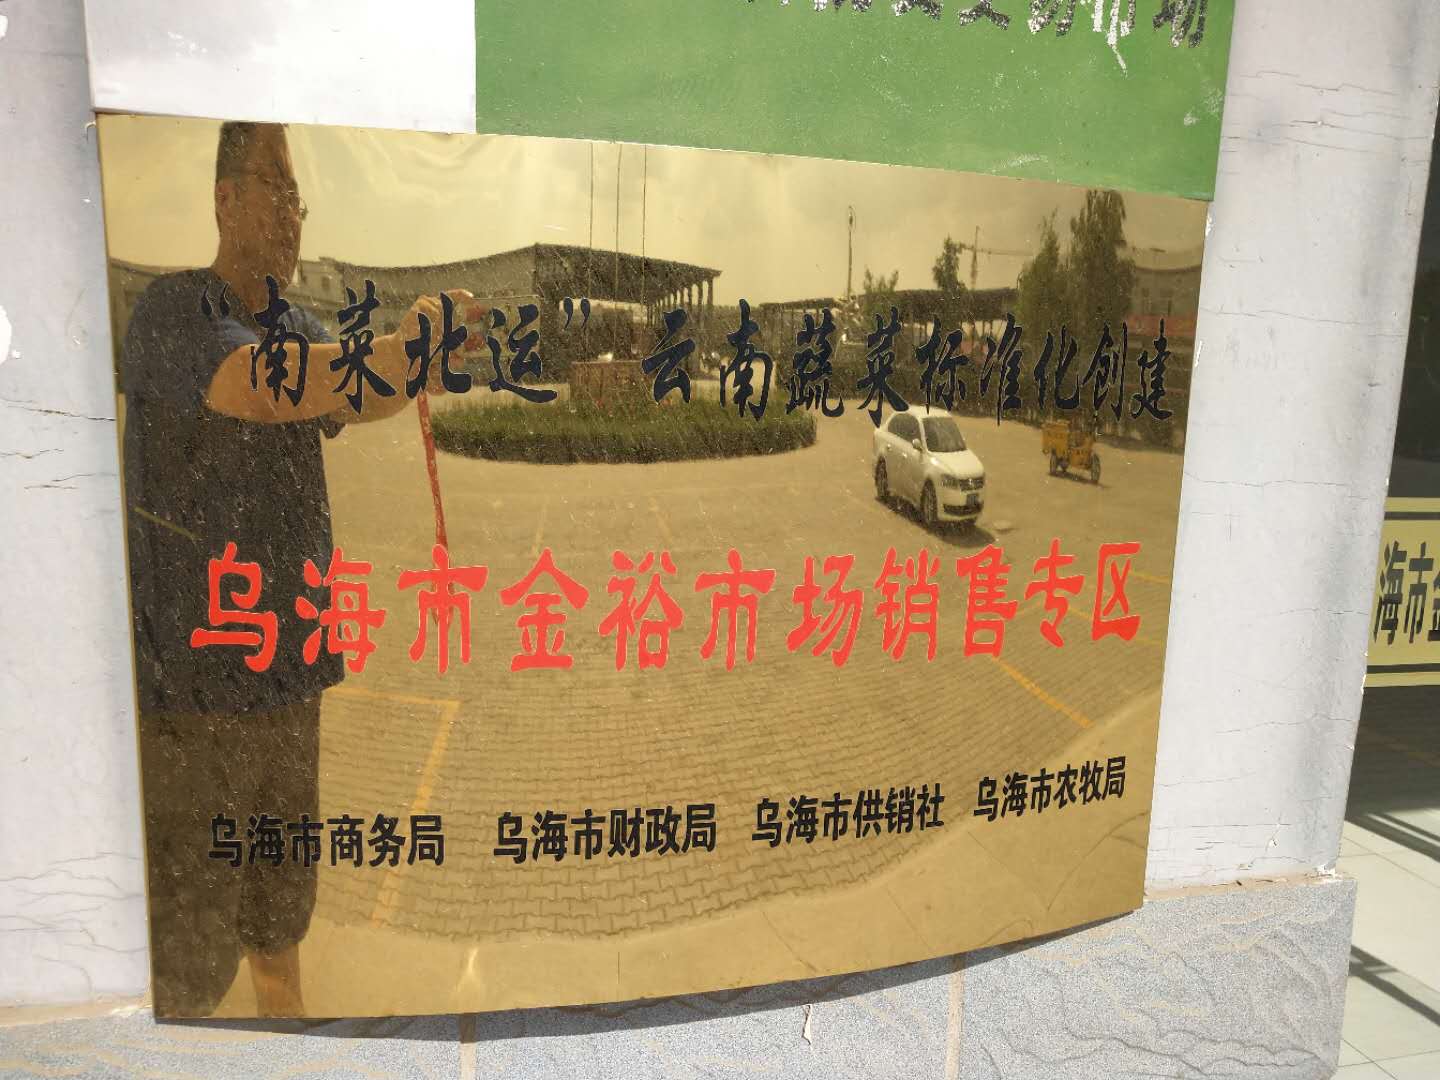 “南菜北运”云南蔬菜标准化创建
乌海市金裕市场销售专区
乌海市商务局 乌海市财政局 乌海市供销社 乌海市农牧局
海市金